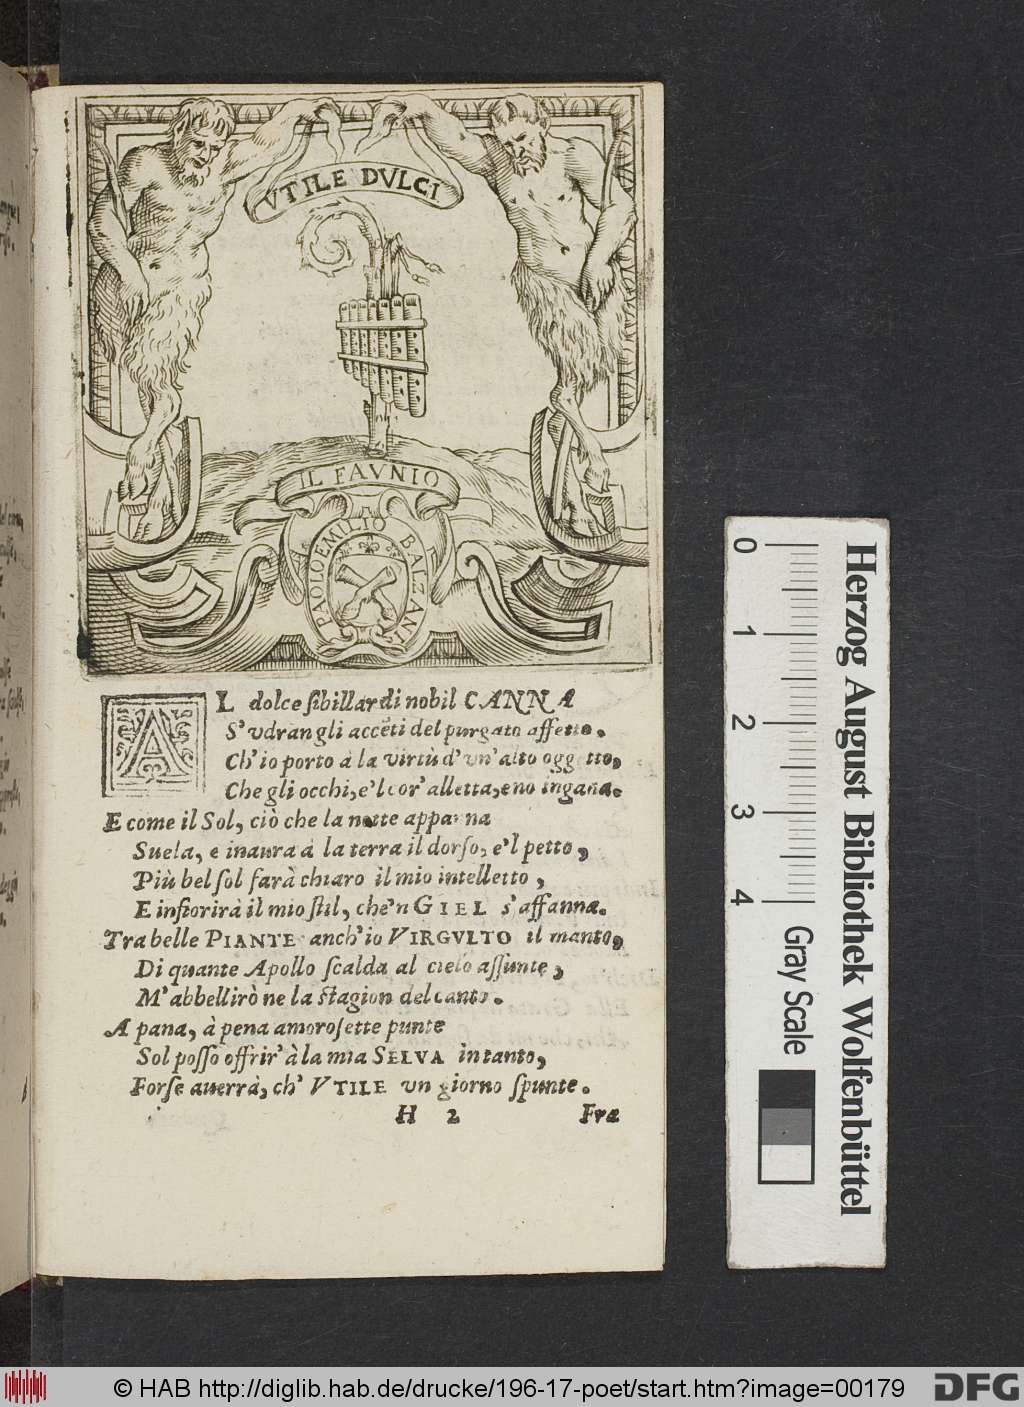 VTILE DVLCI
IL FAVNIO
PAOLO EMILIO BALZANI
AL dolce sibillar di nobil CANNA
S'vdran gli accẽti del purgato affetto,
Ch'io porto à la virtù d'un'alto oggetto,
Che gli occhi, e'l cor' alletta, e nõ ingãna.
E come il Sol, ciò che la notte appanna
Suela, e inaura à la terra il dorso, e'l petto,
Più bel sol farà chiaro il mio intelletto,
E infiorirà il mio stil, che'n GIEL s'affanna.
Tra belle PIANTE anch'io VIRGVLTO il manto,
Di quante Apollo scalda al cielo assunte,
M'abbellirò ne la stagion del canto.
A pana, à pena amorosette punte
Sol posso offrir' à la mia SELVA intanto,
Forse auerrà, ch' VTILE un giorno spunte.
H 2 Fra
0 1 2 3 4 Gray Scale
Herzog August Bibliothek Wolfenbüttel
© HAB http://diglib.hab.de/drucke/196-17-poet/start.htm?image=00179 DFG